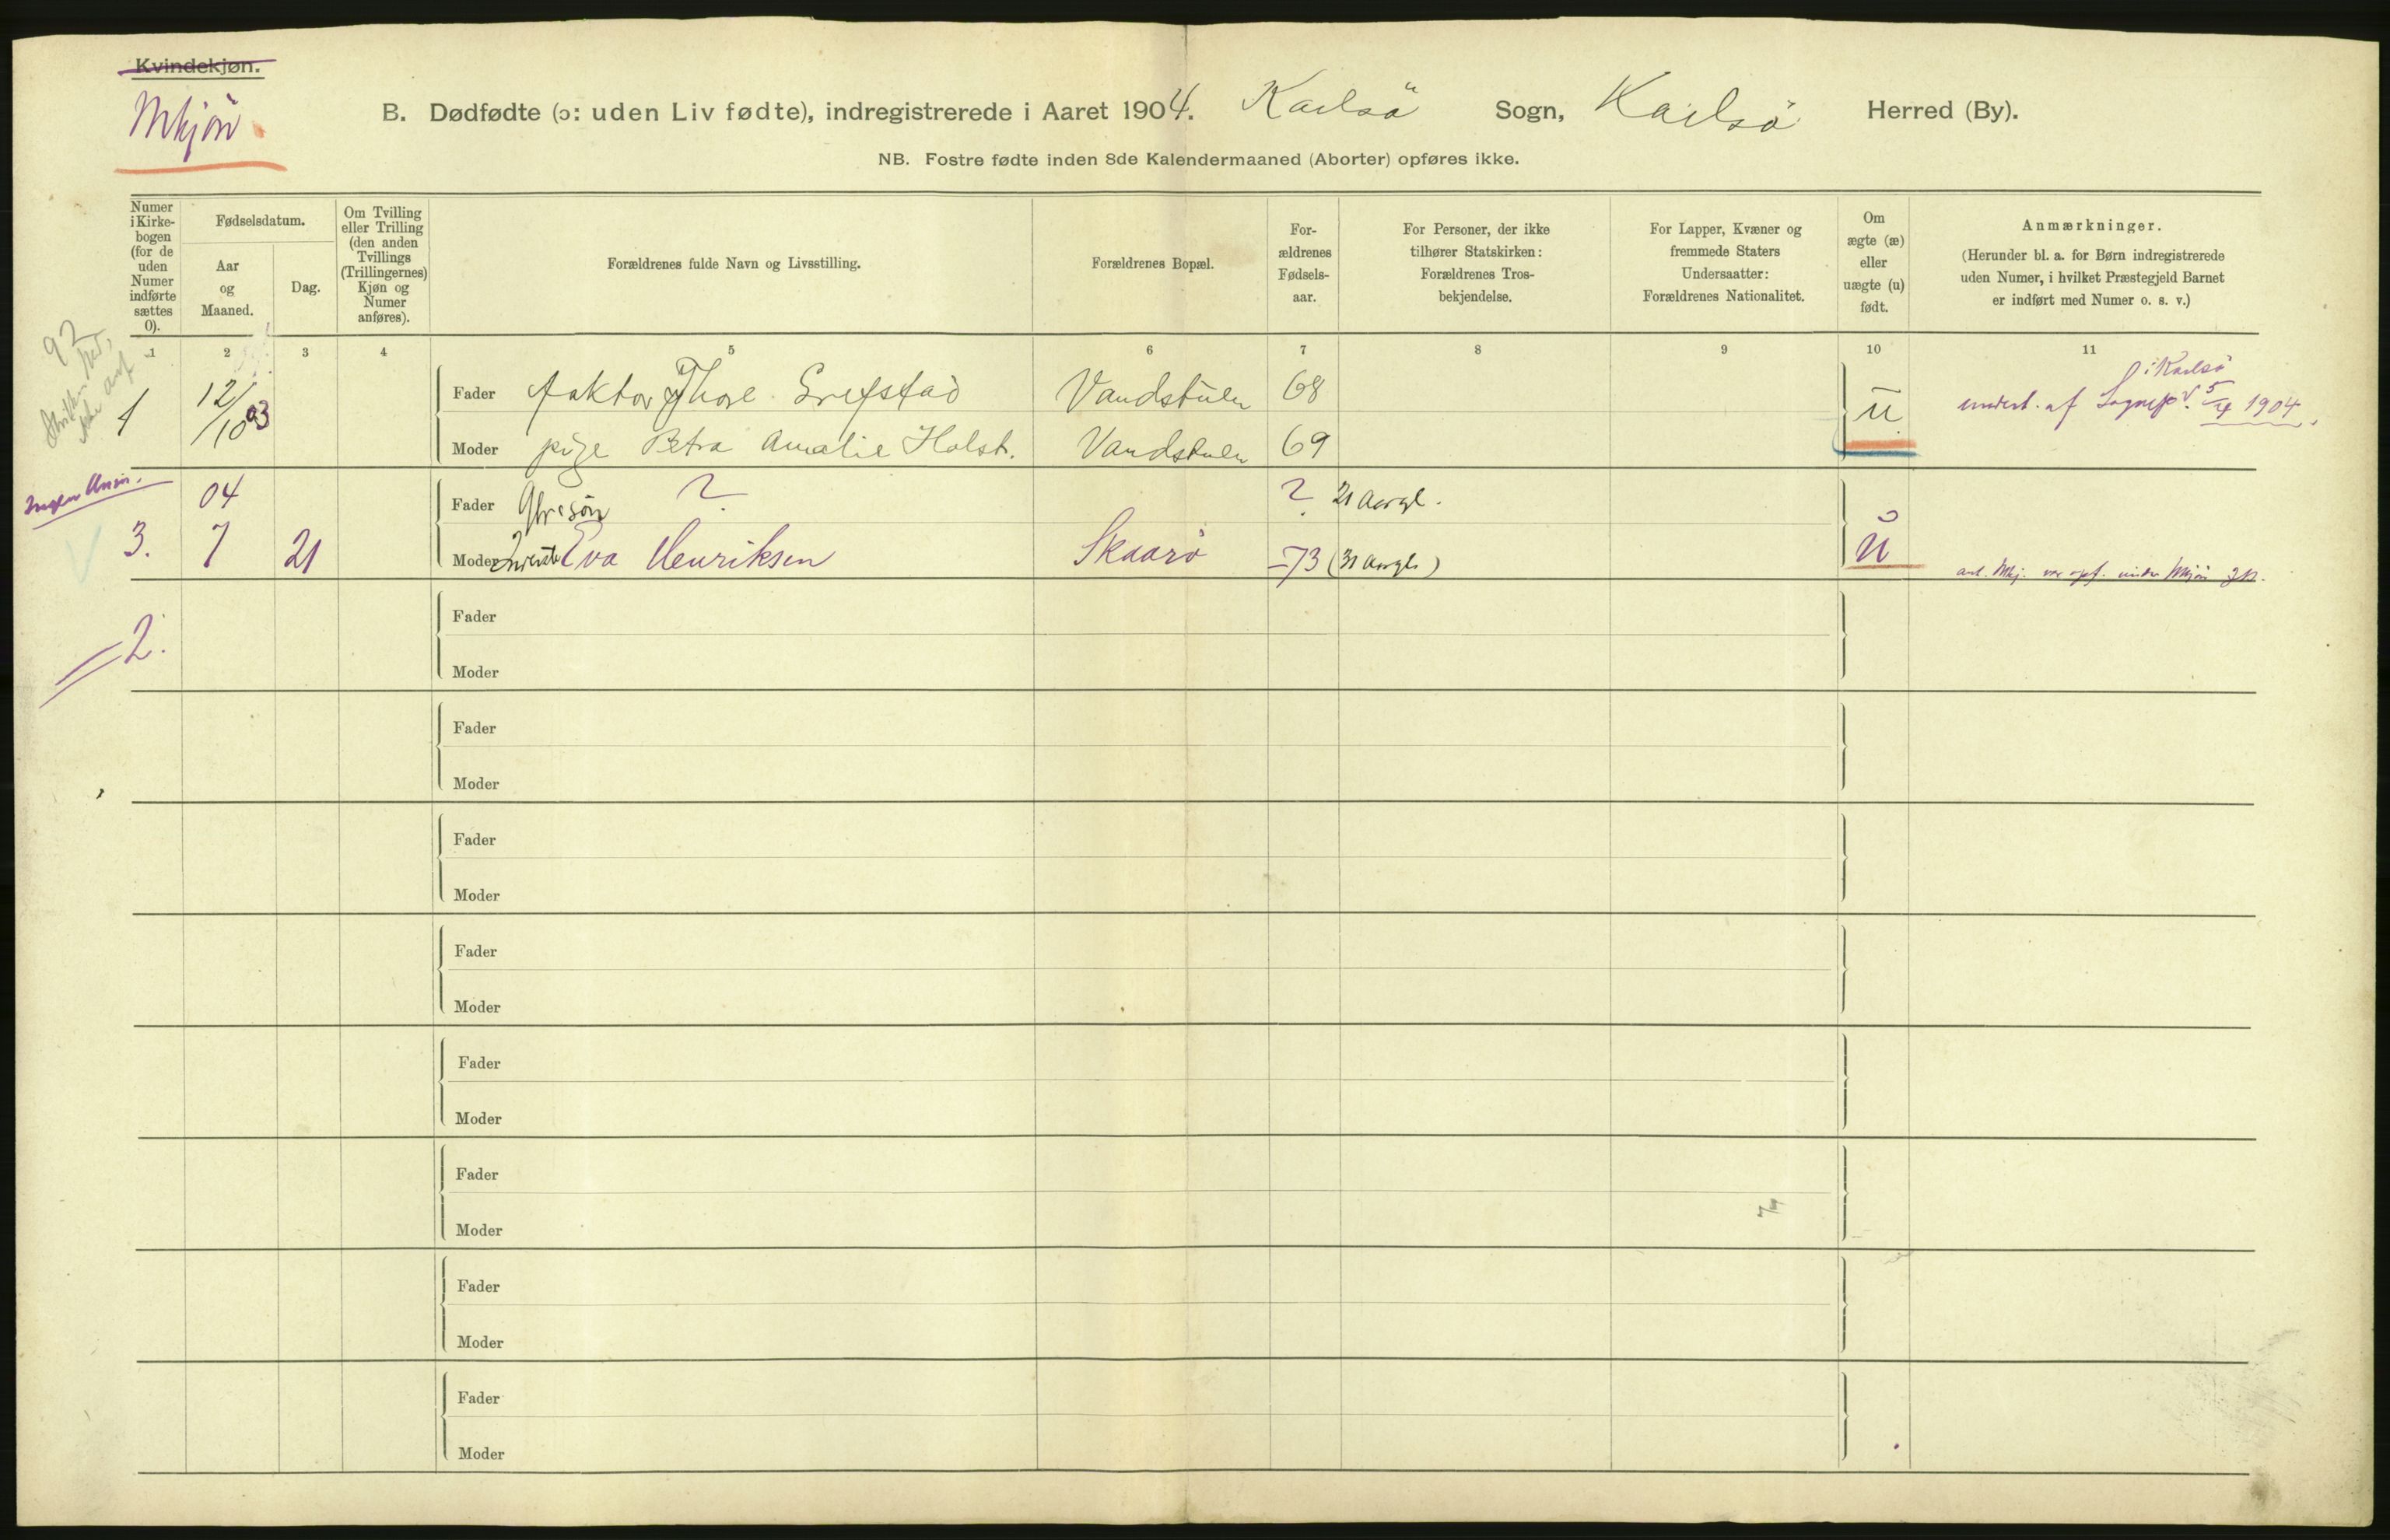 Kvindekjøn.
Mkjøn
B. Dødfødte (ɔ: uden Liv fødte), indregistrerede i Aaret 1904. Karlsö Sogn, Karlsö Herred (By).
NB. Fostre fødte inden 8de Kalendermaaned (Aborter) opføres ikke.
Numer i Kirke-bogen (for de uden Numer indførte sættes 0).
Fødselsdatum.
Aar og Maaned.
Dag.
Om Tvilling eller Trilling (den anden Tvillings (Trillingernes) Kjøn og Numer anføres).
Forældrenes fulde Navn og Livsstilling.
Forældrenes Bopæl.
For-ældrenes Fødsels-aar.
For Personer, der ikke tilhører Statskirken: Forældrenes Tros-bekjendelse.
For Lapper, Kvæner og fremmede Staters Undersaatter: Forældrenes Nationalitet.
Om ægte (æ) eller uægte (u) født.
Anmærkninger.
(Herunder bl. a. for Børn indregistrerede uden Numer, i hvilket Præstegjeld Barnet er indført med Numer o. s. v.)
1 2 3 4 5 6 7 8 9 10 11
92
1 12/10 03 Fader Faktor Thore Vandstuen 68 u
i Karlsö
af Sognep. 1904.
Moder pige Petra Amalie Holst. Vandstuen 69
04 Fader ? ? 21 Aargl.
3. 7 21 Moder Eva Henriksen Skaarö 73 (31 Aargl.) u
2.
Fader
Moder
Fader
Moder
Fader
Moder
Fader
Moder
Fader
Moder
Fader
Moder
Fader
Moder
Fader
Moder